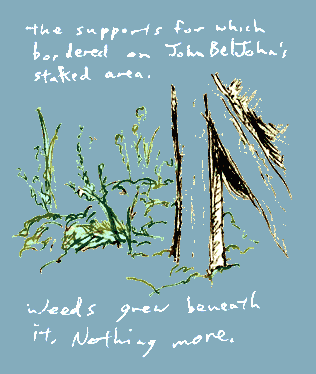 the supports for which
bordered on John BelJohn's
staked area.
Weeds grew beneath
it. Nothing more.